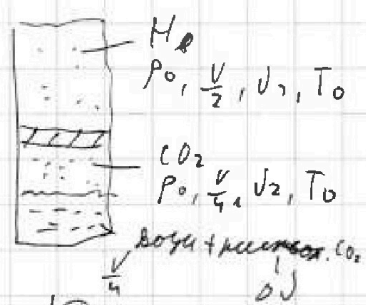 He
P₀, V/2, ν₁, T₀
CO₂
P₀, V/4, ν₂, T₀
V/4
вода + CO₂
Δν